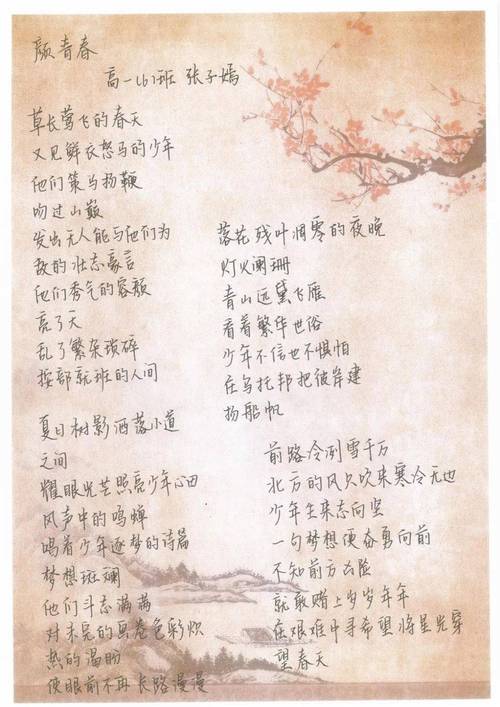 颜青春
高一(6)班 张子嫣
草长莺飞的春天
又见鲜衣怒马的少年
他们策马扬鞭
吻过山巅
发出无人能与他们为
敌的壮态豪言
他们秀气的容颜
亮了天
乱了繁杂琐碎
按部就班的人间
夏日树影洒落小道
之间
耀眼光芒照亮少年心田
风声中的鸣蝉
唱着少年逐梦的诗篇
梦想斑斓
他们斗志满满
对未完的画卷色彩炽
热的渴盼
使眼前不再长路漫漫
落花残叶凋零的夜晚
灯火阑珊
青山远黛飞雁
看着繁华世俗
少年不信也不惧怕
在乌托邦把彼岸建
扬船帆
前路冷冽雪千万
北方的风只吹来寒冷无边
少年生来志向坚
一句梦想便奋勇向前
不知前方凶险
就敢赌上岁岁年年
在艰难中寻希望将星光穿
望春天